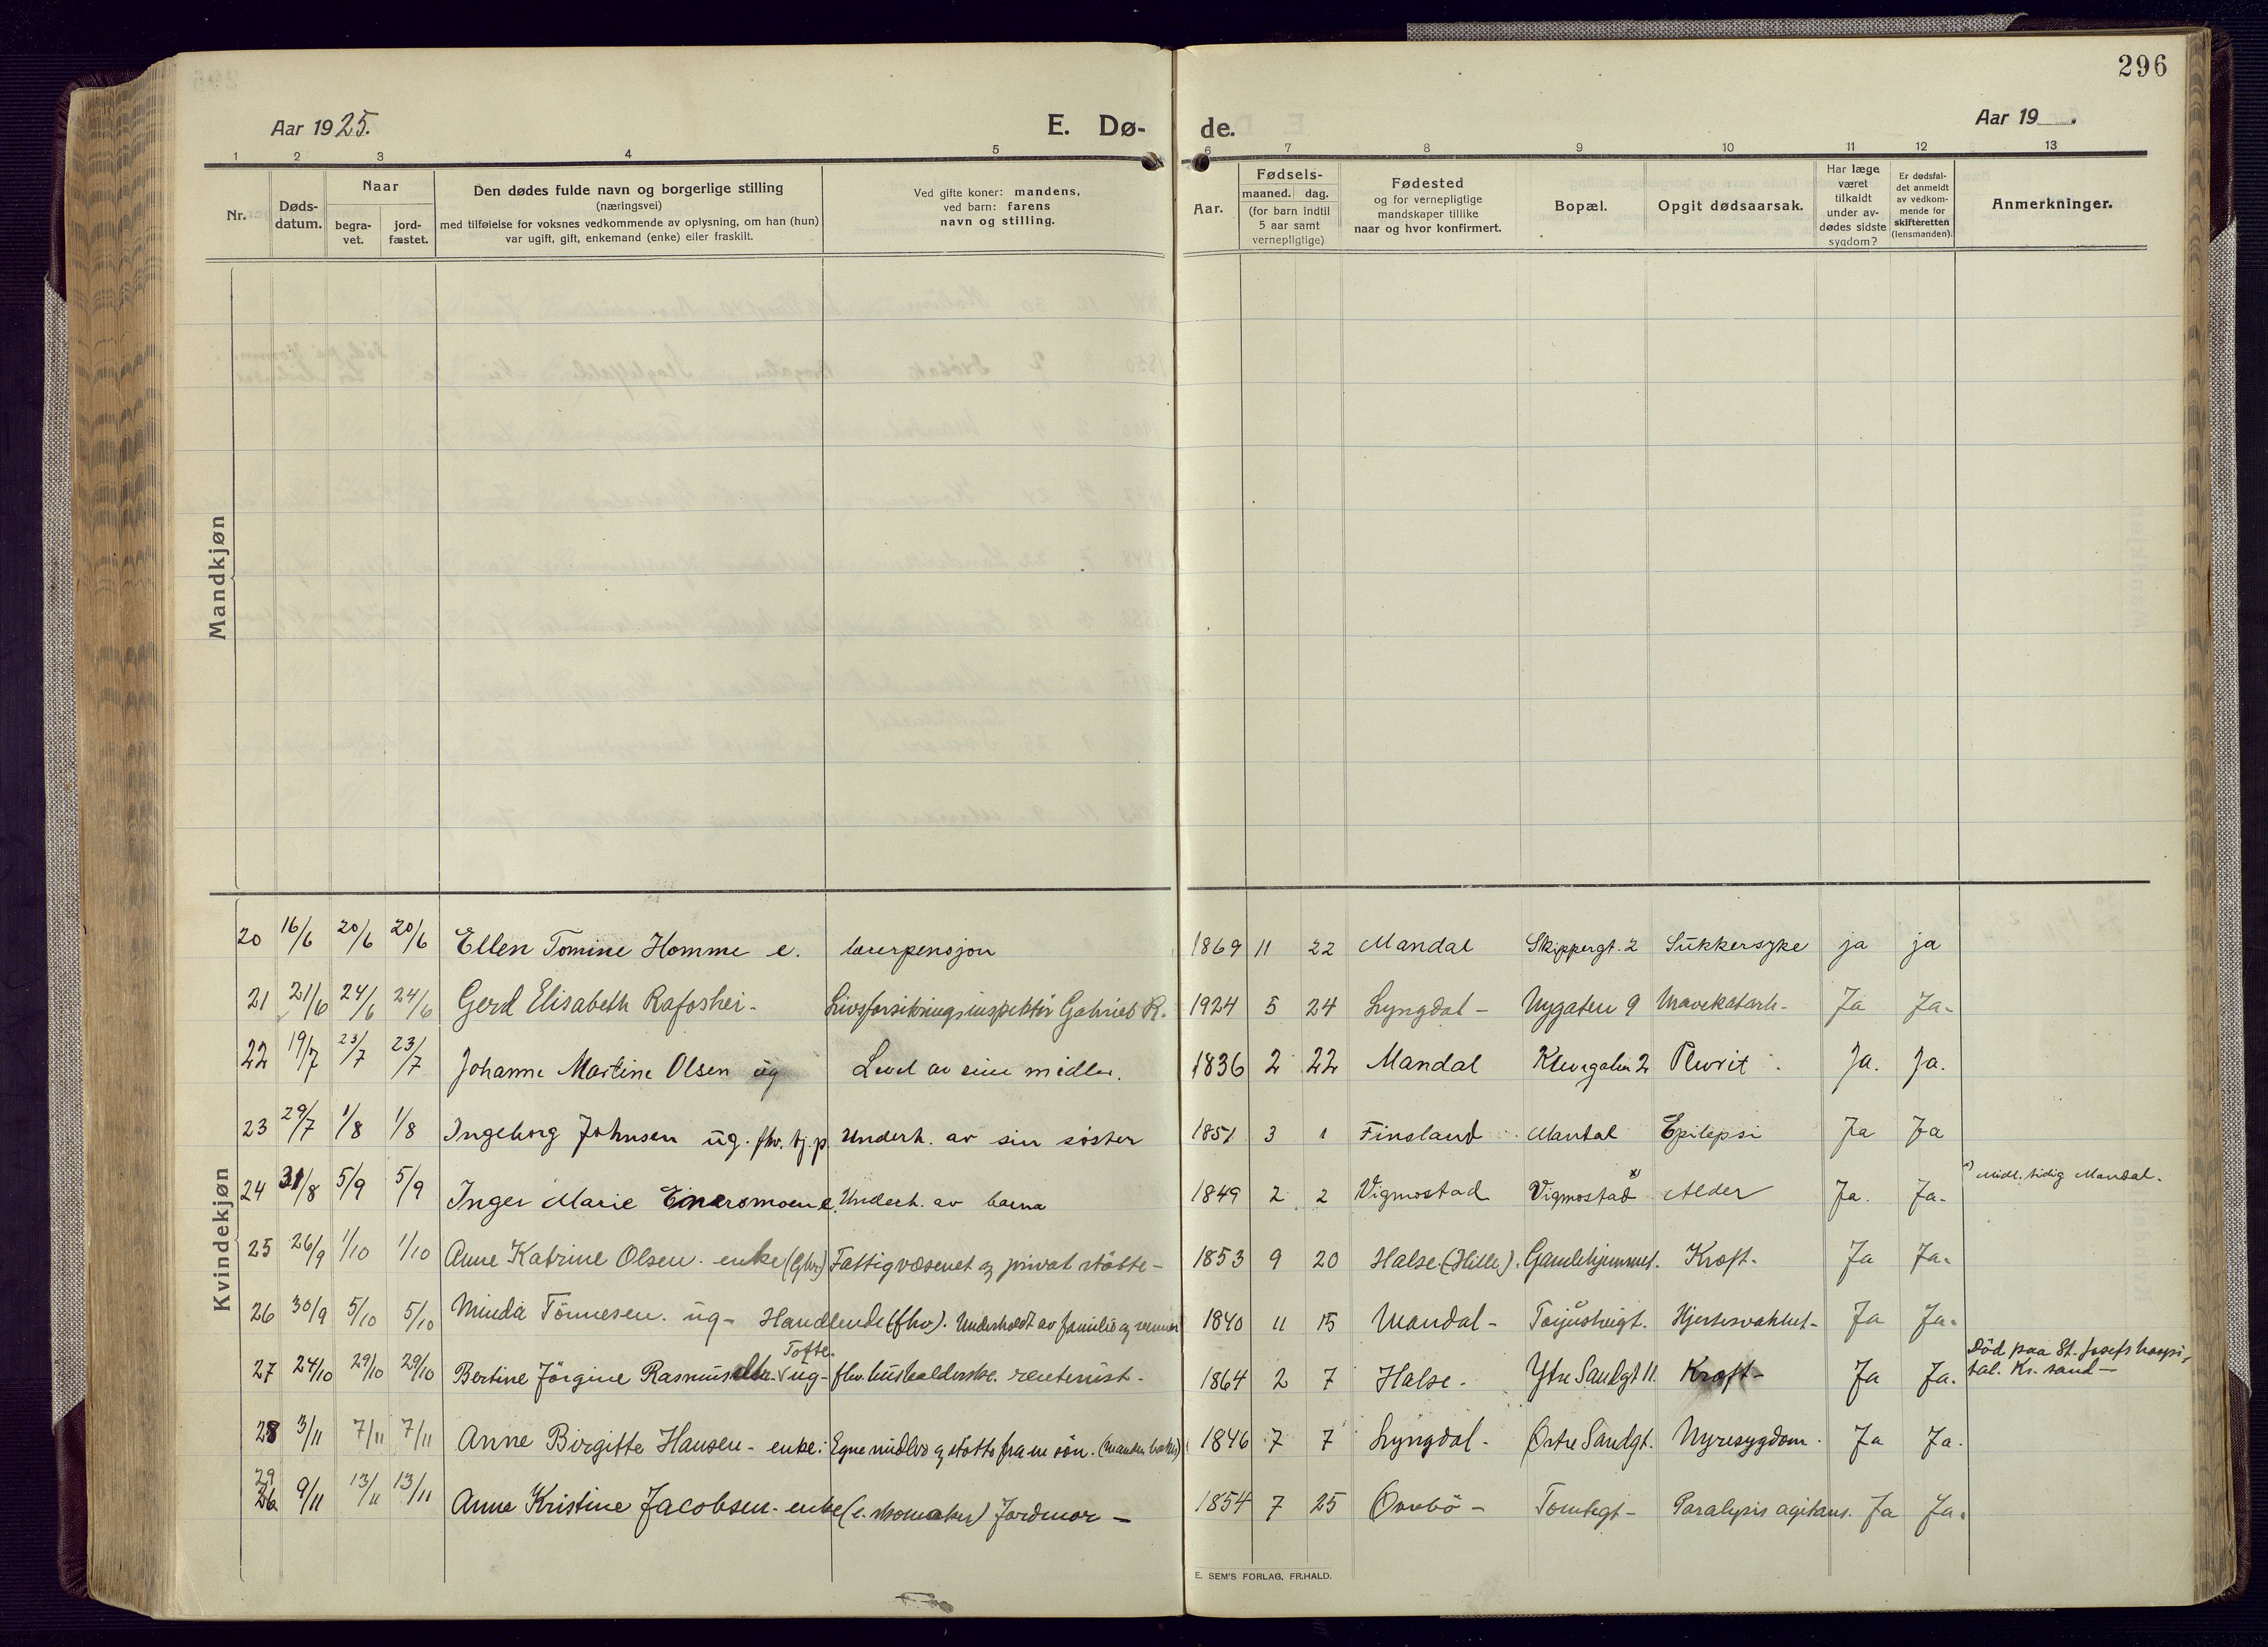 296
Aar 1925.
E. Dø-
de.
Aar 19 .
1 2 3 4 5 6 7 8 9 10 11 12 13
Nr.
Døds-
datum.
Naar
begra-
vet.
jord-
fæstet.
Den dødes fulde navn og borgerlige stilling
(næringsvei)
med tilføielse for voksnes vedkommende av oplysning, om han (hun)
var ugift, gift, enkemand (enke) eller fraskilt.
Ved gifte koner: mandens,
ved barn: farens
navn og stilling.
Aar.
Fødsels-
maaned. dag.
(for barn indtil
5 aar samt
vernepligtige)
Fødested
og for vernepligtige
mandskaper tillike
naar og hvor konfirmert.
Bopæl.
Opgit dødsaarsak.
Har læge
været
tilkaldt
under av-
dødes sidste
sygdom?
Er dødsfal-
det anmeldt
av vedkom-
mende for
skifteretten
(lensmanden).
Anmerkninger.
Mandkjøn
Kvindekjøn
20 16/6 20/6 20/6 Ellen Tomine Homme e. lærerpensjon 1869 11 22 Mandal Skippergt. 2 Sukkersyke ja ja
21 21/6 24/6 24/6 Gerd Elisabeth Rafoshei - Livsforsikringsinspektör Gabriel R. 1924 5 24 Lyngdal - Nygaten 9 Mavekatarh - Ja Ja -
22 19/7 23/7 23/7 Johanne Martine Olsen ug Levet av sine midler. 1836 2 22 Mandal 2 Plevrit Ja. Ja.
23 29/7 1/8 1/8 Ingeborg Johnsen ug. fhv. tj.p. Underh. av sin söster 1851 3 1 Finsland Mandal Epilepsi Ja Ja
24 31/8 5/9 5/9 Inger Marie e. Underh. av barna 1849 2 2 Vigmostad Vigmostad x) Alder Ja. Ja - x) Midl. tidig Mandal.
25 26/9 1/10 1/10 Anne Katrine Olsen. enke Fattigvæsenet og privat stötte - 1853 9 20 Halse (Hille). Gamlehjemmet. Kræft. Ja Ja -
26 30/9 5/10 5/10 Minda Tönnesen. ug - Handlende (fhv). Underholdt av familie og venner 1840 11 15 Mandal - Hjertesvakhet - Ja Ja -
Tofte.
27 24/10 29/10 29/10 Bertine Jörgine Rasmusdtr. ug - fhv. husholderske. rentenist - 1864 2 7 Halse - Ytre Sandgt 11. Kræft - Ja Ja. Död paa St. Josefs hospi-
tal. Kr. sand -
28 3/11 7/11 7/11 Anne Birgitte Hansen - enke: Egne midler og stötte fra en sön. 1846 7 7 Lyngdal - Østre Sandgt. Nyresygdom. Ja Ja.
29
26 9/11 13/11 13/11 Anne Kristine Jacobsen - enke (e. skomaker) Jordmor - 1854 7 25 Øvrebö - Tomtegt - Paralysis agitans. Ja Ja.
E. SEM'S FORLAG, FR.HALD.